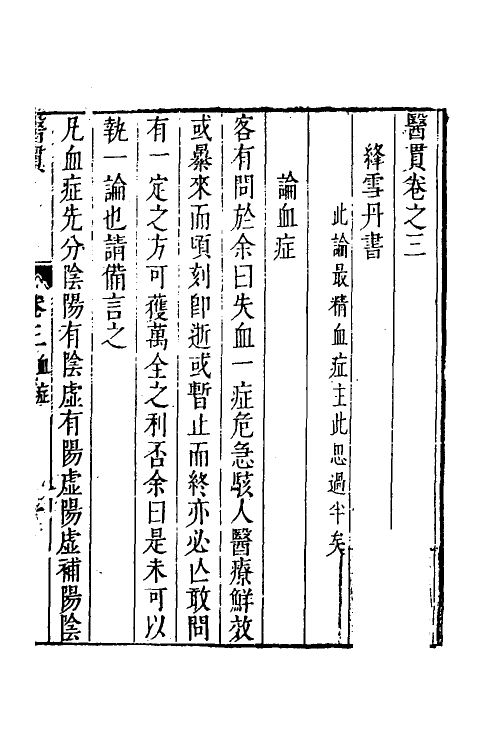 醫貫卷之三
絳雪丹書
此論最精血症主此思過半矣
論血症
客有問於余曰失血一症危急駭人醫療鮮效
或暴來而頃刻即逝或暫止而終亦必亾敢問
有一定之方可獲萬全之利否余曰是未可以
執一論也請備言之
凡血症先分陰陽有陰虛有陽虛陽虛補陽陰
醫貫 卷之三 血症